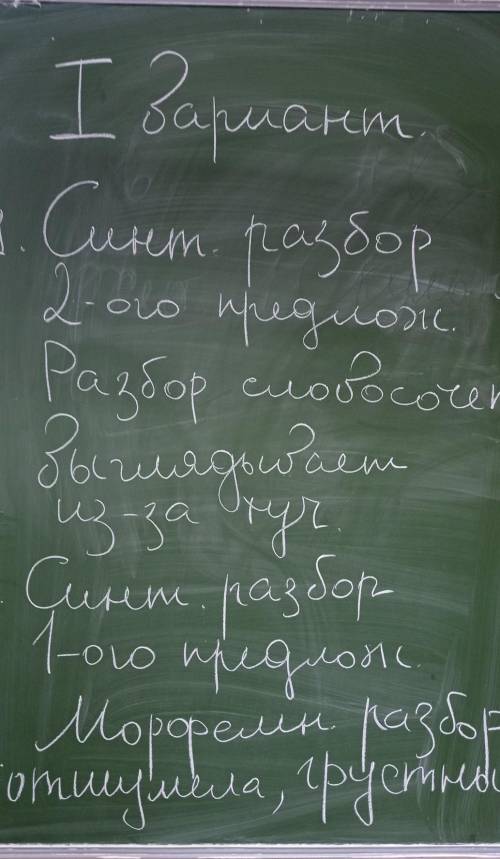 I Вариант.
1. Синт. разбор
2-ого предлож.
Разбор словосочет
Выглядывает
из-за туч.
Синт. разбор
1-ого предлож.
Морфемн. разбор
отшумела, грустны